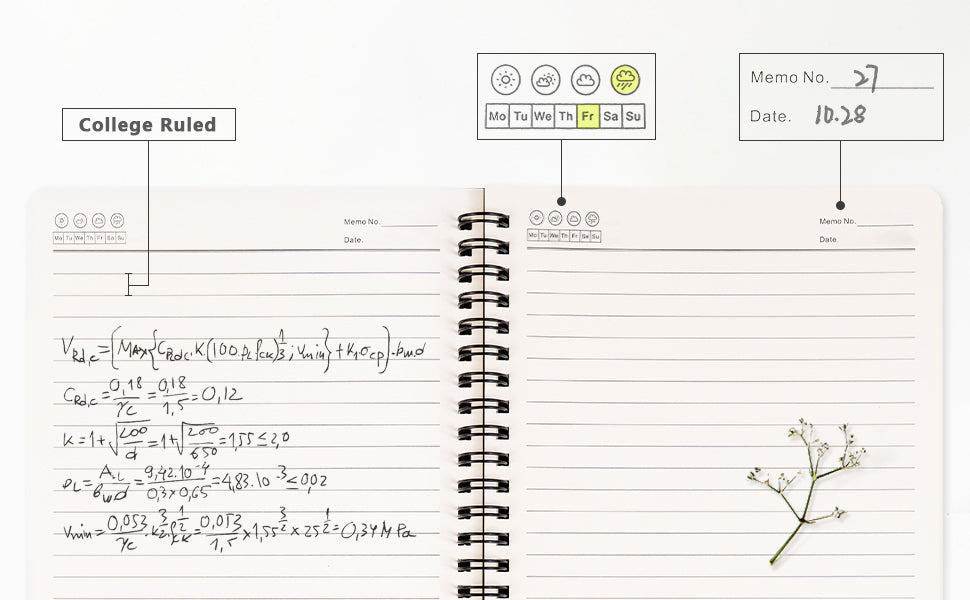 College Ruled
Mo Tu We Th Fr Sa Su
Memo No. 27
Date. 10.28
Mo Tu We Th Fr Sa Su
Memo No.
Date.
V_Rd,c = [MAX{C_Rd,c · K (100 · ρ_L f_ck)^1/3 ; V_min} + K_1 σ_cp] · b_w d
C_Rd,c = 0,18/γc = 0,18/1,5 = 0,12
K = 1 + √200/d = 1 + √200/650 = 1,55 ≤ 2,0
ρ_L = A_sL/b_w d = 9,42.10^-4/0,3x0,65 = 4,83.10^-3 ≤ 0,02
V_min = 0,053/γc · K^3/2 · f_ck^1/2 = 0,053/1,5 x 1,55^3/2 x 25^1/2 = 0,34 MPa
Mo Tu We Th Fr Sa Su
Memo No.
Date.